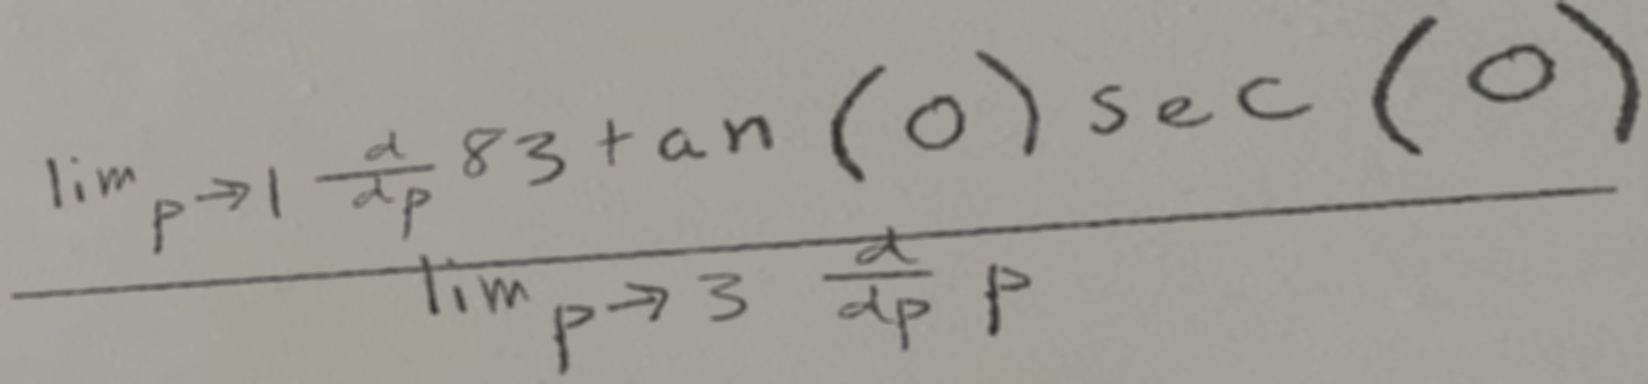 lim p→1 d/dp 83 tan (0) sec (0)
lim p→3 d/dp p